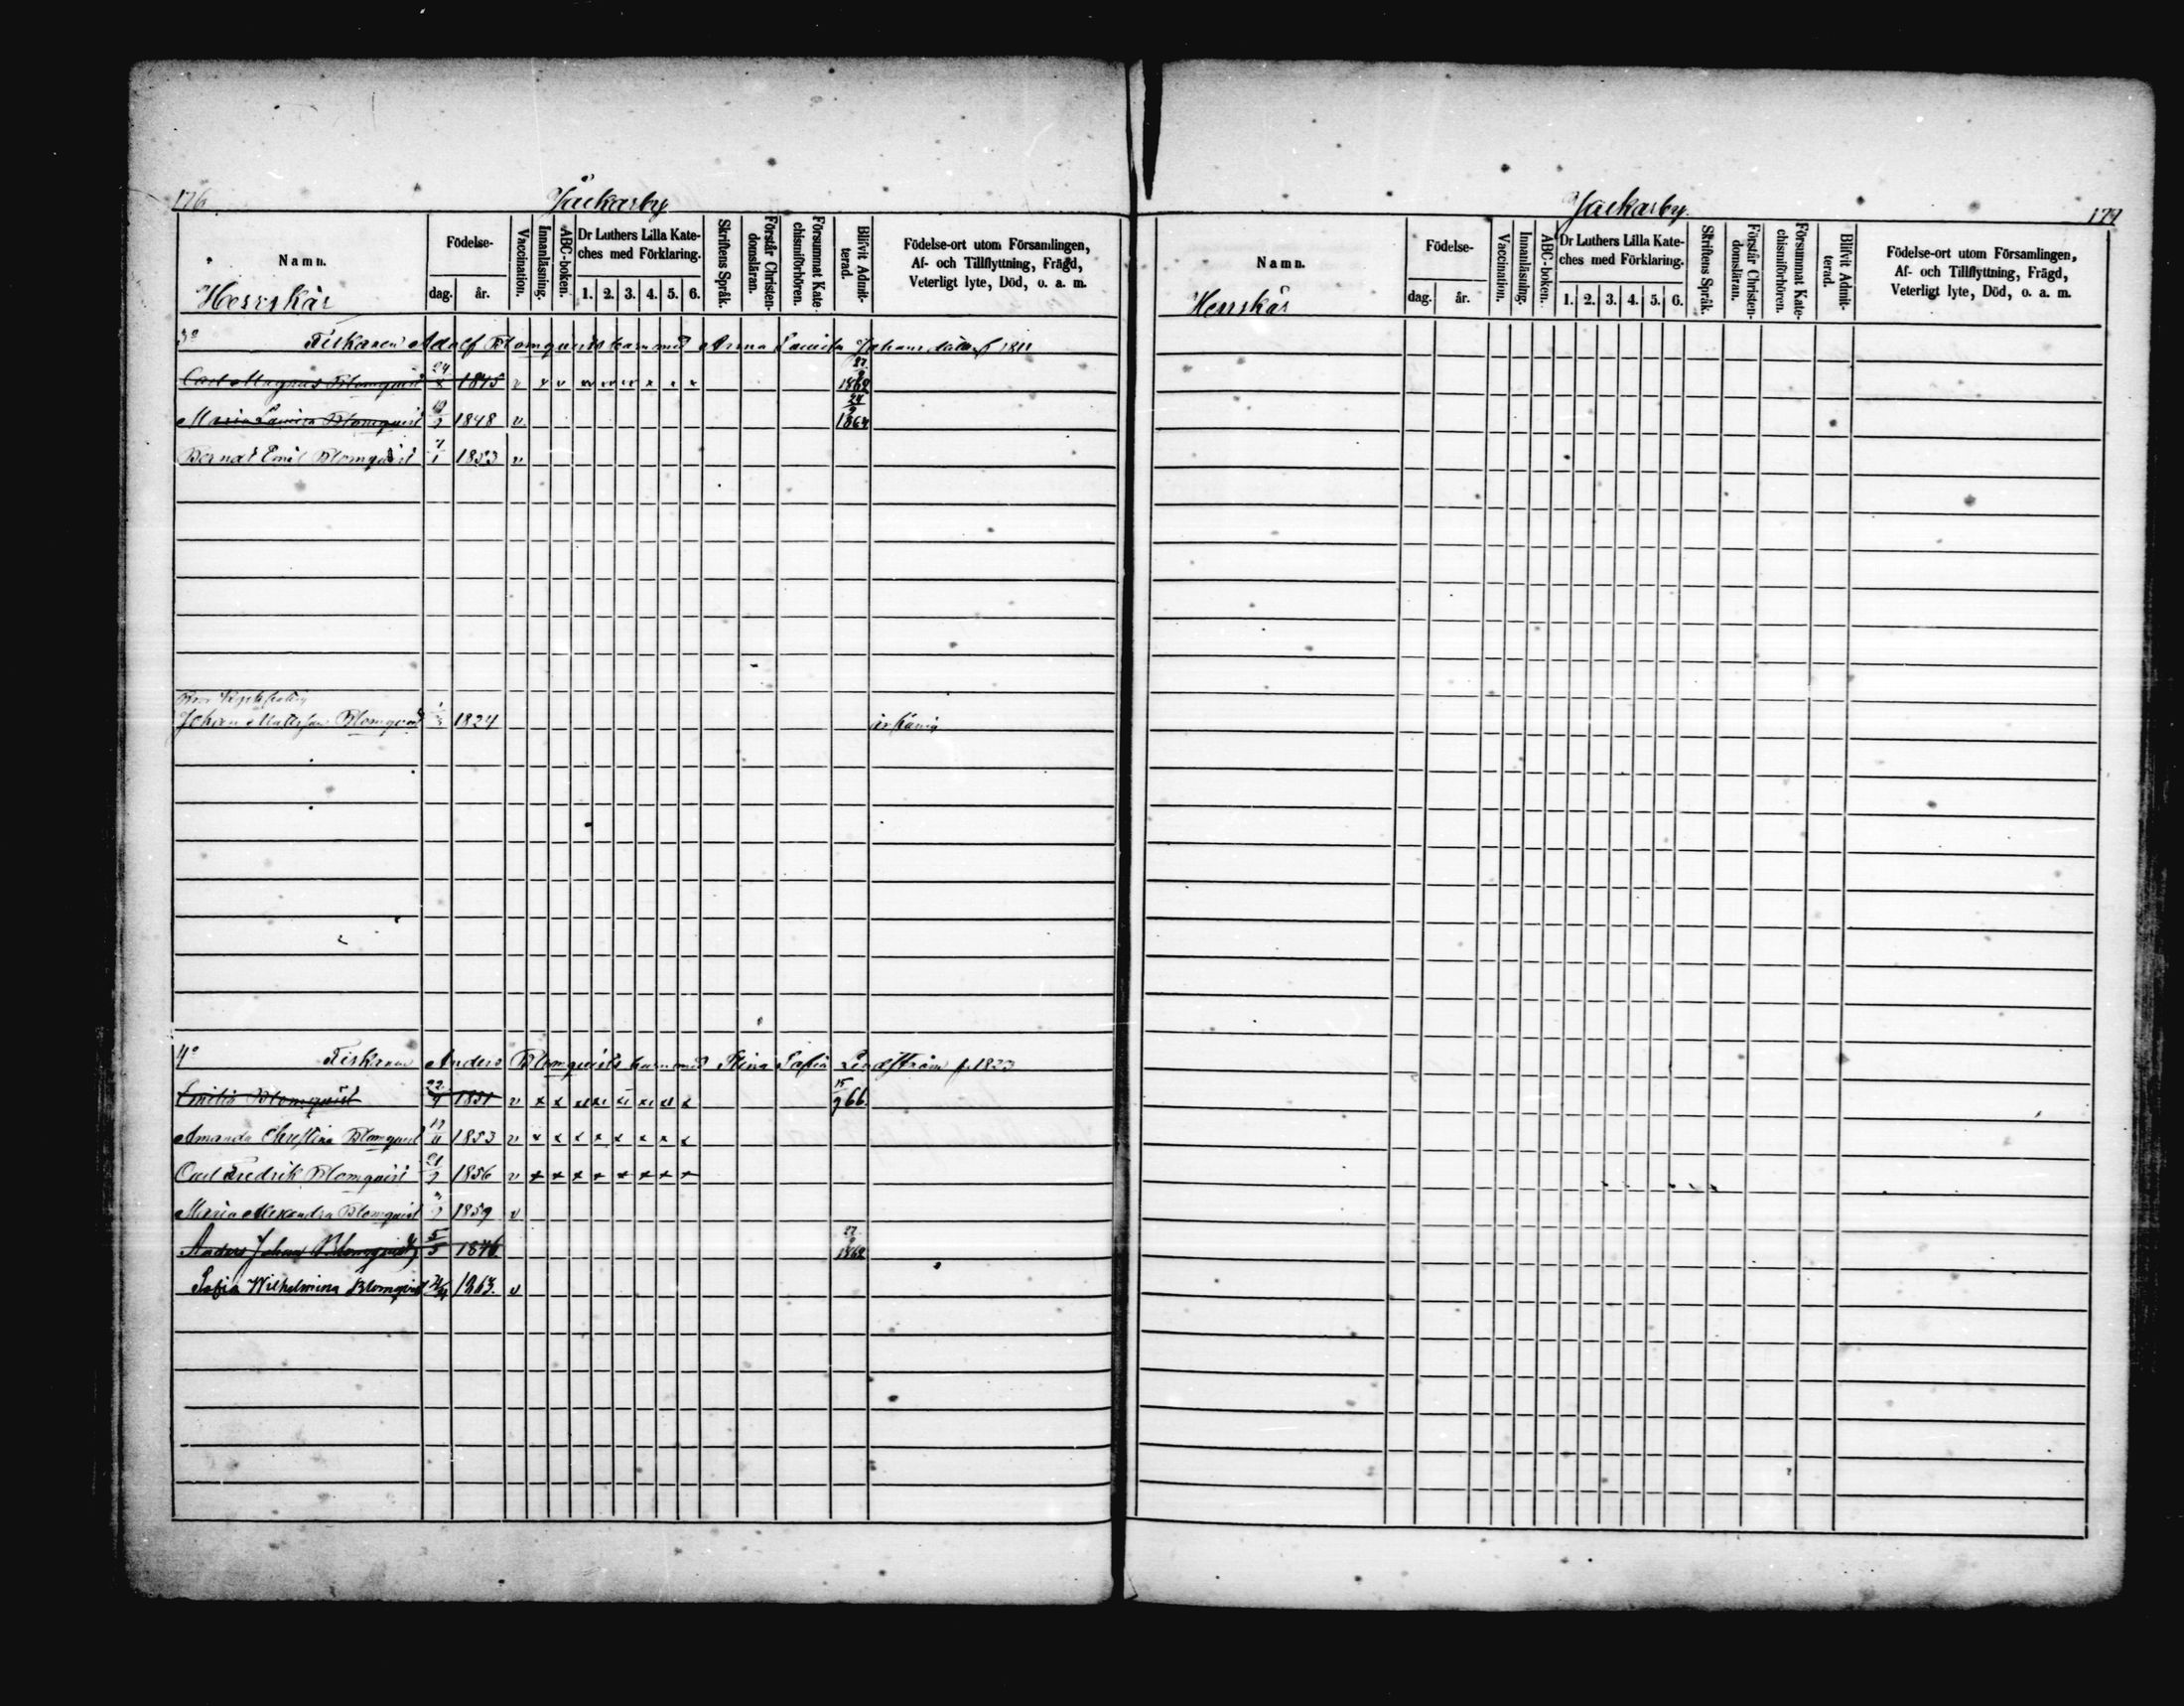 176
Jackarby
Namn.
Födelse-
dag. år.
Vaccination.
Innanläsning.
ABC-boken.
Dr Luthers Lilla Kate-
ches med Förklaring.
1. 2. 3. 4. 5. 6.
Skriftens Språk.
Förstår Christen-
domsläran.
Försummat Kate-
chismiförhören.
Blifvit Admit-
terad.
Födelse-ort utom Församlingen,
Af- och Tillflyttning, Frägd,
Veterligt lyte, Död, o. a. m.
Herrskär
3o Fiskaren Adolf Blomquists barn med Anna Lovisa Johansdotter f 1811
Carl Magnus Blomquist 24 1845 v 27 1862
Maria Lovisa Blomquist 1848 v 24 9 1864
Bernat Emil Blomquist 7/1 1853 v
Johan Blomquist 1824
4o Fiskaren Anders Blomquists barn med Stina Sofia Lindström f. 1823
Emilia Blomquist 22/9 1851 v x x x x x x x x 15/9 66
Amanda Christina Blomquist 17/11 1853 v x x x x x x x x
Carl Fredrik Blomquist 21/9 1856 v x x x x x x x x
Maria Alexandra Blomquist 1859 v
Anders Johan Blomquist 5/5 1846 27 1862
Sofia Wilhelmina Blomqvist 1863. v
Jackarby
177
Namn.
Födelse-
dag. år.
Vaccination.
Innanläsning.
ABC-boken.
Dr Luthers Lilla Kate-
ches med Förklaring.
1. 2. 3. 4. 5. 6.
Skriftens Språk.
Förstår Christen-
domsläran.
Försummat Kate-
chismiförhören.
Blifvit Admit-
terad.
Födelse-ort utom Församlingen,
Af- och Tillflyttning, Frägd,
Veterligt lyte, Död, o. a. m.
Herrskär